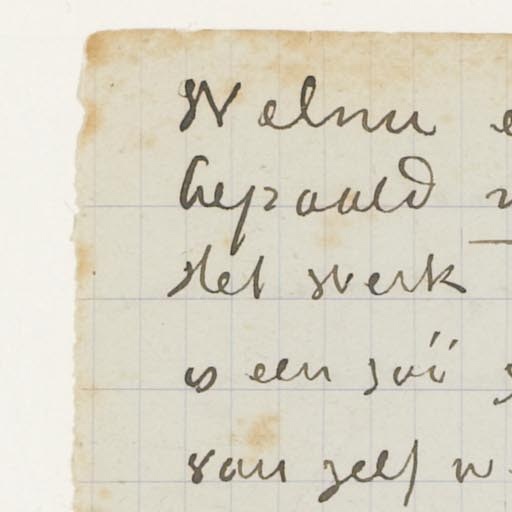 Welnu
bepaald
Het werk
is een
van zelf